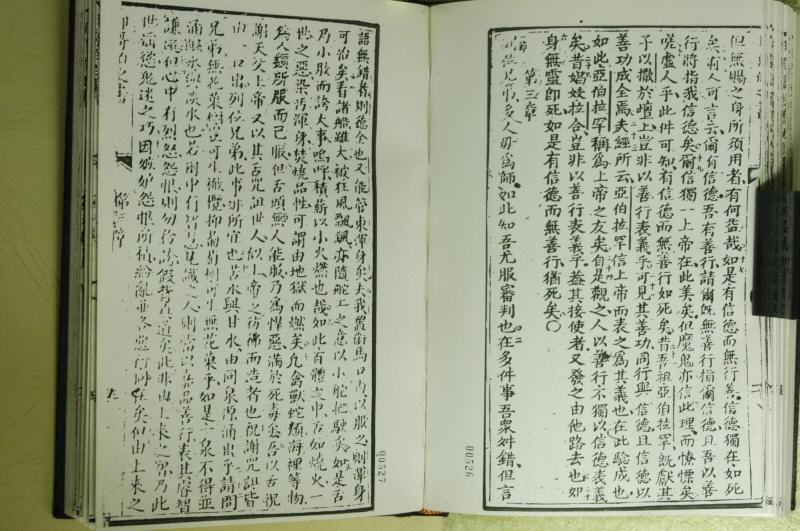 但無賜之身所須用者有何益哉如是有信德而無行義信德獨在如死
矣有人可言云爾有信德吾有善行請爾旣無善行指爾信德且吾以善
行將指我信德矣爾信獨一上帝在此美矣但魔鬼亦信此理而慄慄矣
嗟虛人乎此件可知有信德而無善行如死矣昔吾祖亞伯拉罕旣獻其
子以撒於壇上豈非以善行表義乎可見其善功同行與信德且信德以
善功成全焉夫經所云亞伯拉罕信上帝而表之為其義也在此驗成也
如此亞伯拉罕稱為上帝之友矣自是觀之人以善行不獨以信德表義
矣昔娼妓拉合豈非以善行表義乎蓋其接使者又發之由他路去也如
身無靈卽死如是有信德而無善行猶死矣
第三章
列位兄弟多人毋為師如此知吾尤服審判也在多件事吾衆舛錯但言
00526
語無錯者則德全也又能管束渾身矣夫我置銜馬口內以服之則渾身
可治矣看諸船雖大被狂風飄颻亦隨舵工之意以小舵把駛矣如是舌
乃小肢而誇大事嗚呼積薪以小火燃也哉如此百體之中舌如燒火一
世之惡染污渾身焚燒品性可謂由地獄而燃矣凡禽獸蛇類海裡等物
為人類所服而已服但舌頭無人能服乃為悍惡滿於死毒也吾以舌祝
謝天父上帝又以其舌咒詛世人似上帝之彷彿而造者也祝謝咒詛皆
由一口出列位兄弟此事非所宜也苦水與甘水由同泉源涌出乎請問
兄弟無花菓樹豈可生橄欖抑葡萄樹可生無花菓乎如是一泉不得並
涌鹹水與淡水也若爾中有智慧見識之人則當以善品善行表其睿智
謙遜和心中有烈怨怨恨則勿矜誇假冒眞道矣此非由上來之智乃此
世滔慾鬼迷之巧因嫉妒怨恨所積紛亂並各惡行尚在矣但由上來之
卽哥伯之書
第三章
00527